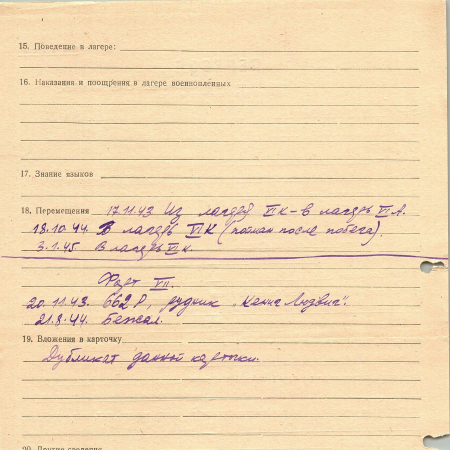 15. Поведение в лагере:
16. Наказания и поощрения в лагере военнопленных
17. Знание языков
18. Перемещения 17.11.43 Из лагеря VI K - в лагерь VI A.
18.10.44. В лагерь VI K (пойман после побега).
3.1.45. В лагерь VI K.
Форт VII.
20.11.43. 662 Р, рудник „
21.8.44. Бежал.
19. Вложения в карточку
Дубликат данной карточки.
20. Другие сведения